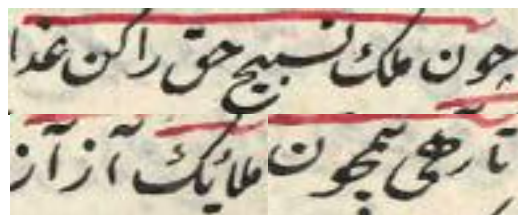 چون ملک تسبیح حق را کن غذا
تا رهی همچون ملائک از آزا